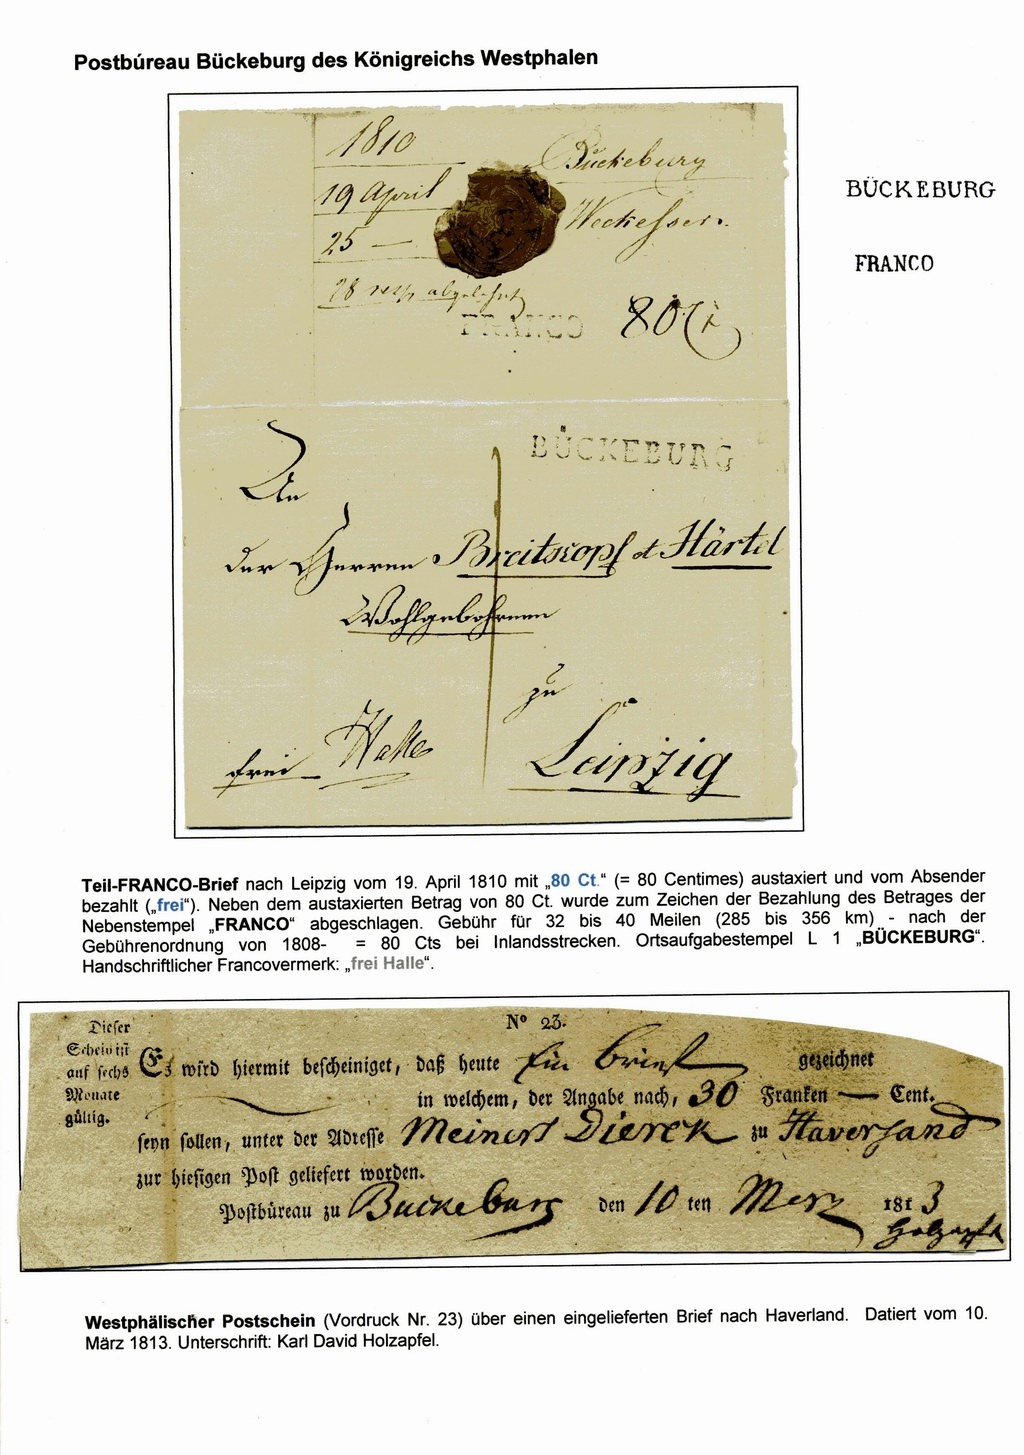 Postbúreau Bückeburg des Königreichs Westphalen
1810
Bückeburg
19 April
Weckesser.
25 —
28 resp abgelehnt
FRANCO
80 Ct
BÜCKEBURG
FRANCO
BÜCKEBURG
An
der Herren Breitkopf et Härtel
Wohlgebohrenen
zu
frei Halle
Leipzig
Teil-FRANCO-Brief nach Leipzig vom 19. April 1810 mit „80 Ct.“ (= 80 Centimes) austaxiert und vom Absender
bezahlt („frei“). Neben dem austaxierten Betrag von 80 Ct. wurde zum Zeichen der Bezahlung des Betrages der
Nebenstempel „FRANCO“ abgeschlagen. Gebühr für 32 bis 40 Meilen (285 bis 356 km) - nach der
Gebührenordnung von 1808- = 80 Cts bei Inlandsstrecken. Ortsaufgabestempel L 1 „BÜCKEBURG“.
Handschriftlicher Francovermerk: „frei Halle“.
Dieser
Schein ist
auf sechs
Monate
gültig.
Nº 23.
Es wird hiermit bescheiniget, daß heute Ein Brief gezeichnet
in welchem, der Angabe nach, 30 Franken — Cent.
seyn sollen, unter der Adresse Meinert Dierck zu Haverland
zur hiesigen Post geliefert worden.
Postbüreau zu Buckeburg den 10 ten Merz 1813
Holzapfel
Westphälischer Postschein (Vordruck Nr. 23) über einen eingelieferten Brief nach Haverland. Datiert vom 10.
März 1813. Unterschrift: Karl David Holzapfel.